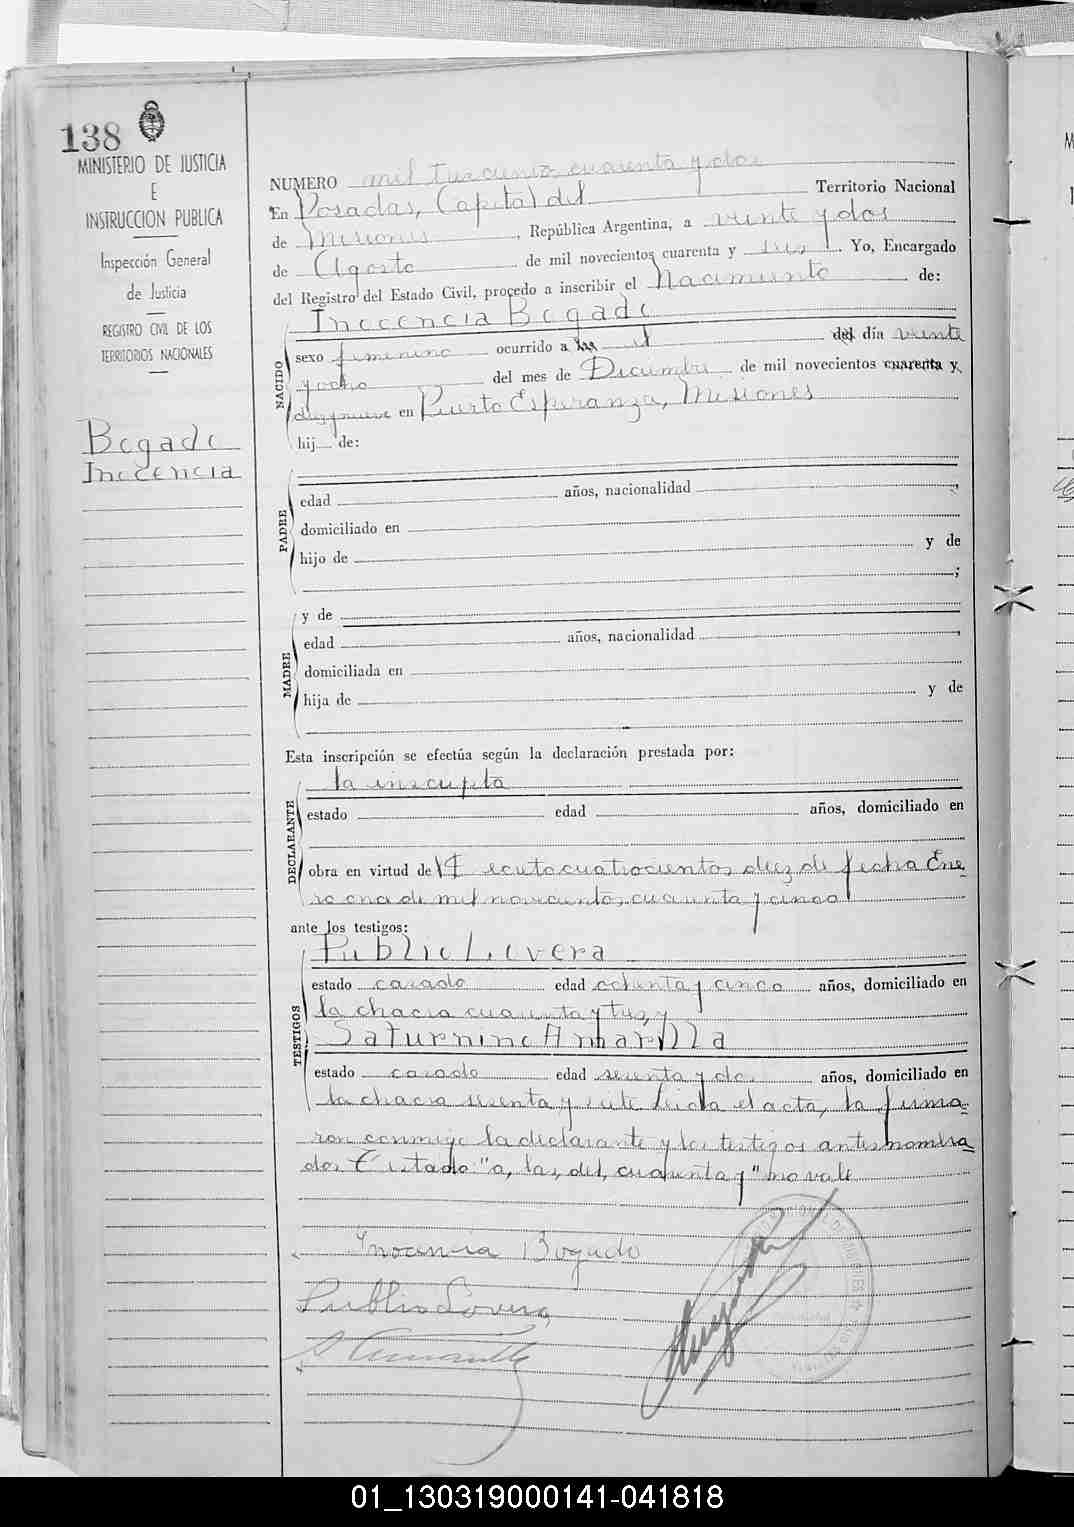 138
MINISTERIO DE JUSTICIA
E
INSTRUCCION PUBLICA
Inspección General
de Justicia
REGISTRO CIVIL DE LOS
TERRITORIOS NACIONALES
Bogado
Inocencia
NUMERO mil trescientos cuarenta y dos
En Posadas, Capital del Territorio Nacional
de Misiones, República Argentina, a veinte y dos
de Agosto de mil novecientos cuarenta y Yo, Encargado
del Registro del Estado Civil, procedo a inscribir el Nacimiento de:
NACIDO
Inocencia Bogado
sexo femenino ocurrido a las el del día veinte
y ocho del mes de Diciembre de mil novecientos cuarenta y
diez y nueve en Puerto Esperanza, Misiones
hij de:
PADRE
edad años, nacionalidad ,
domiciliado en
hijo de y de
;
MADRE
y de
edad años, nacionalidad ,
domiciliada en
hija de y de
Esta inscripción se efectúa según la declaración prestada por:
DECLARANTE
la inscripta
estado edad años, domiciliado en
obra en virtud de cuatrocientos diez de fecha Ene
ro once de mil novecientos cuarenta y cinco
ante los testigos:
TESTIGOS
Publio Lovera
estado casado edad ochenta y cinco años, domiciliado en
la chacra cuarenta y tres, y
Saturnino Amarilla
estado casado edad sesenta y dos años, domiciliado en
la chacra sesenta y siete Leida el acta, la firma-
ron conmigo la declarante y los testigos antes nombra
dos Testado: "a, las, del, cuarenta y" no vale
Inocencia Bogado
Publio Lovera
01_130319000141-041818